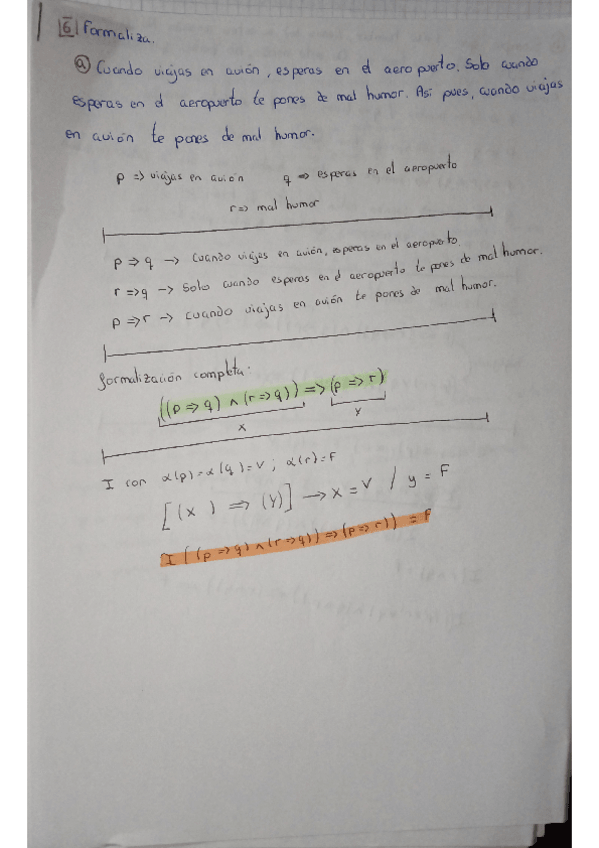 6 Formaliza.
a) Cuando viajas en avión, esperas en el aeropuerto. Solo cuando
esperas en el aeropuerto te pones de mal humor. Así pues, cuando viajas
en avión te pones de mal humor.
p => viajas en avión q => esperas en el aeropuerto
r => mal humor
p => q -> Cuando viajas en avión, esperas en el aeropuerto.
r => q -> Solo cuando esperas en el aeropuerto te pones de mal humor.
p => r -> cuando viajas en avión te pones de mal humor.
formalización completa:
((p => q) ∧ (r => q)) => (p => r)
x y
I con α(p)=α(q)=V; α(r)=F
[(x ) => (y)] -> x = V / y = F
I ((p => q) ∧ (r => q)) => (p => r)) = F